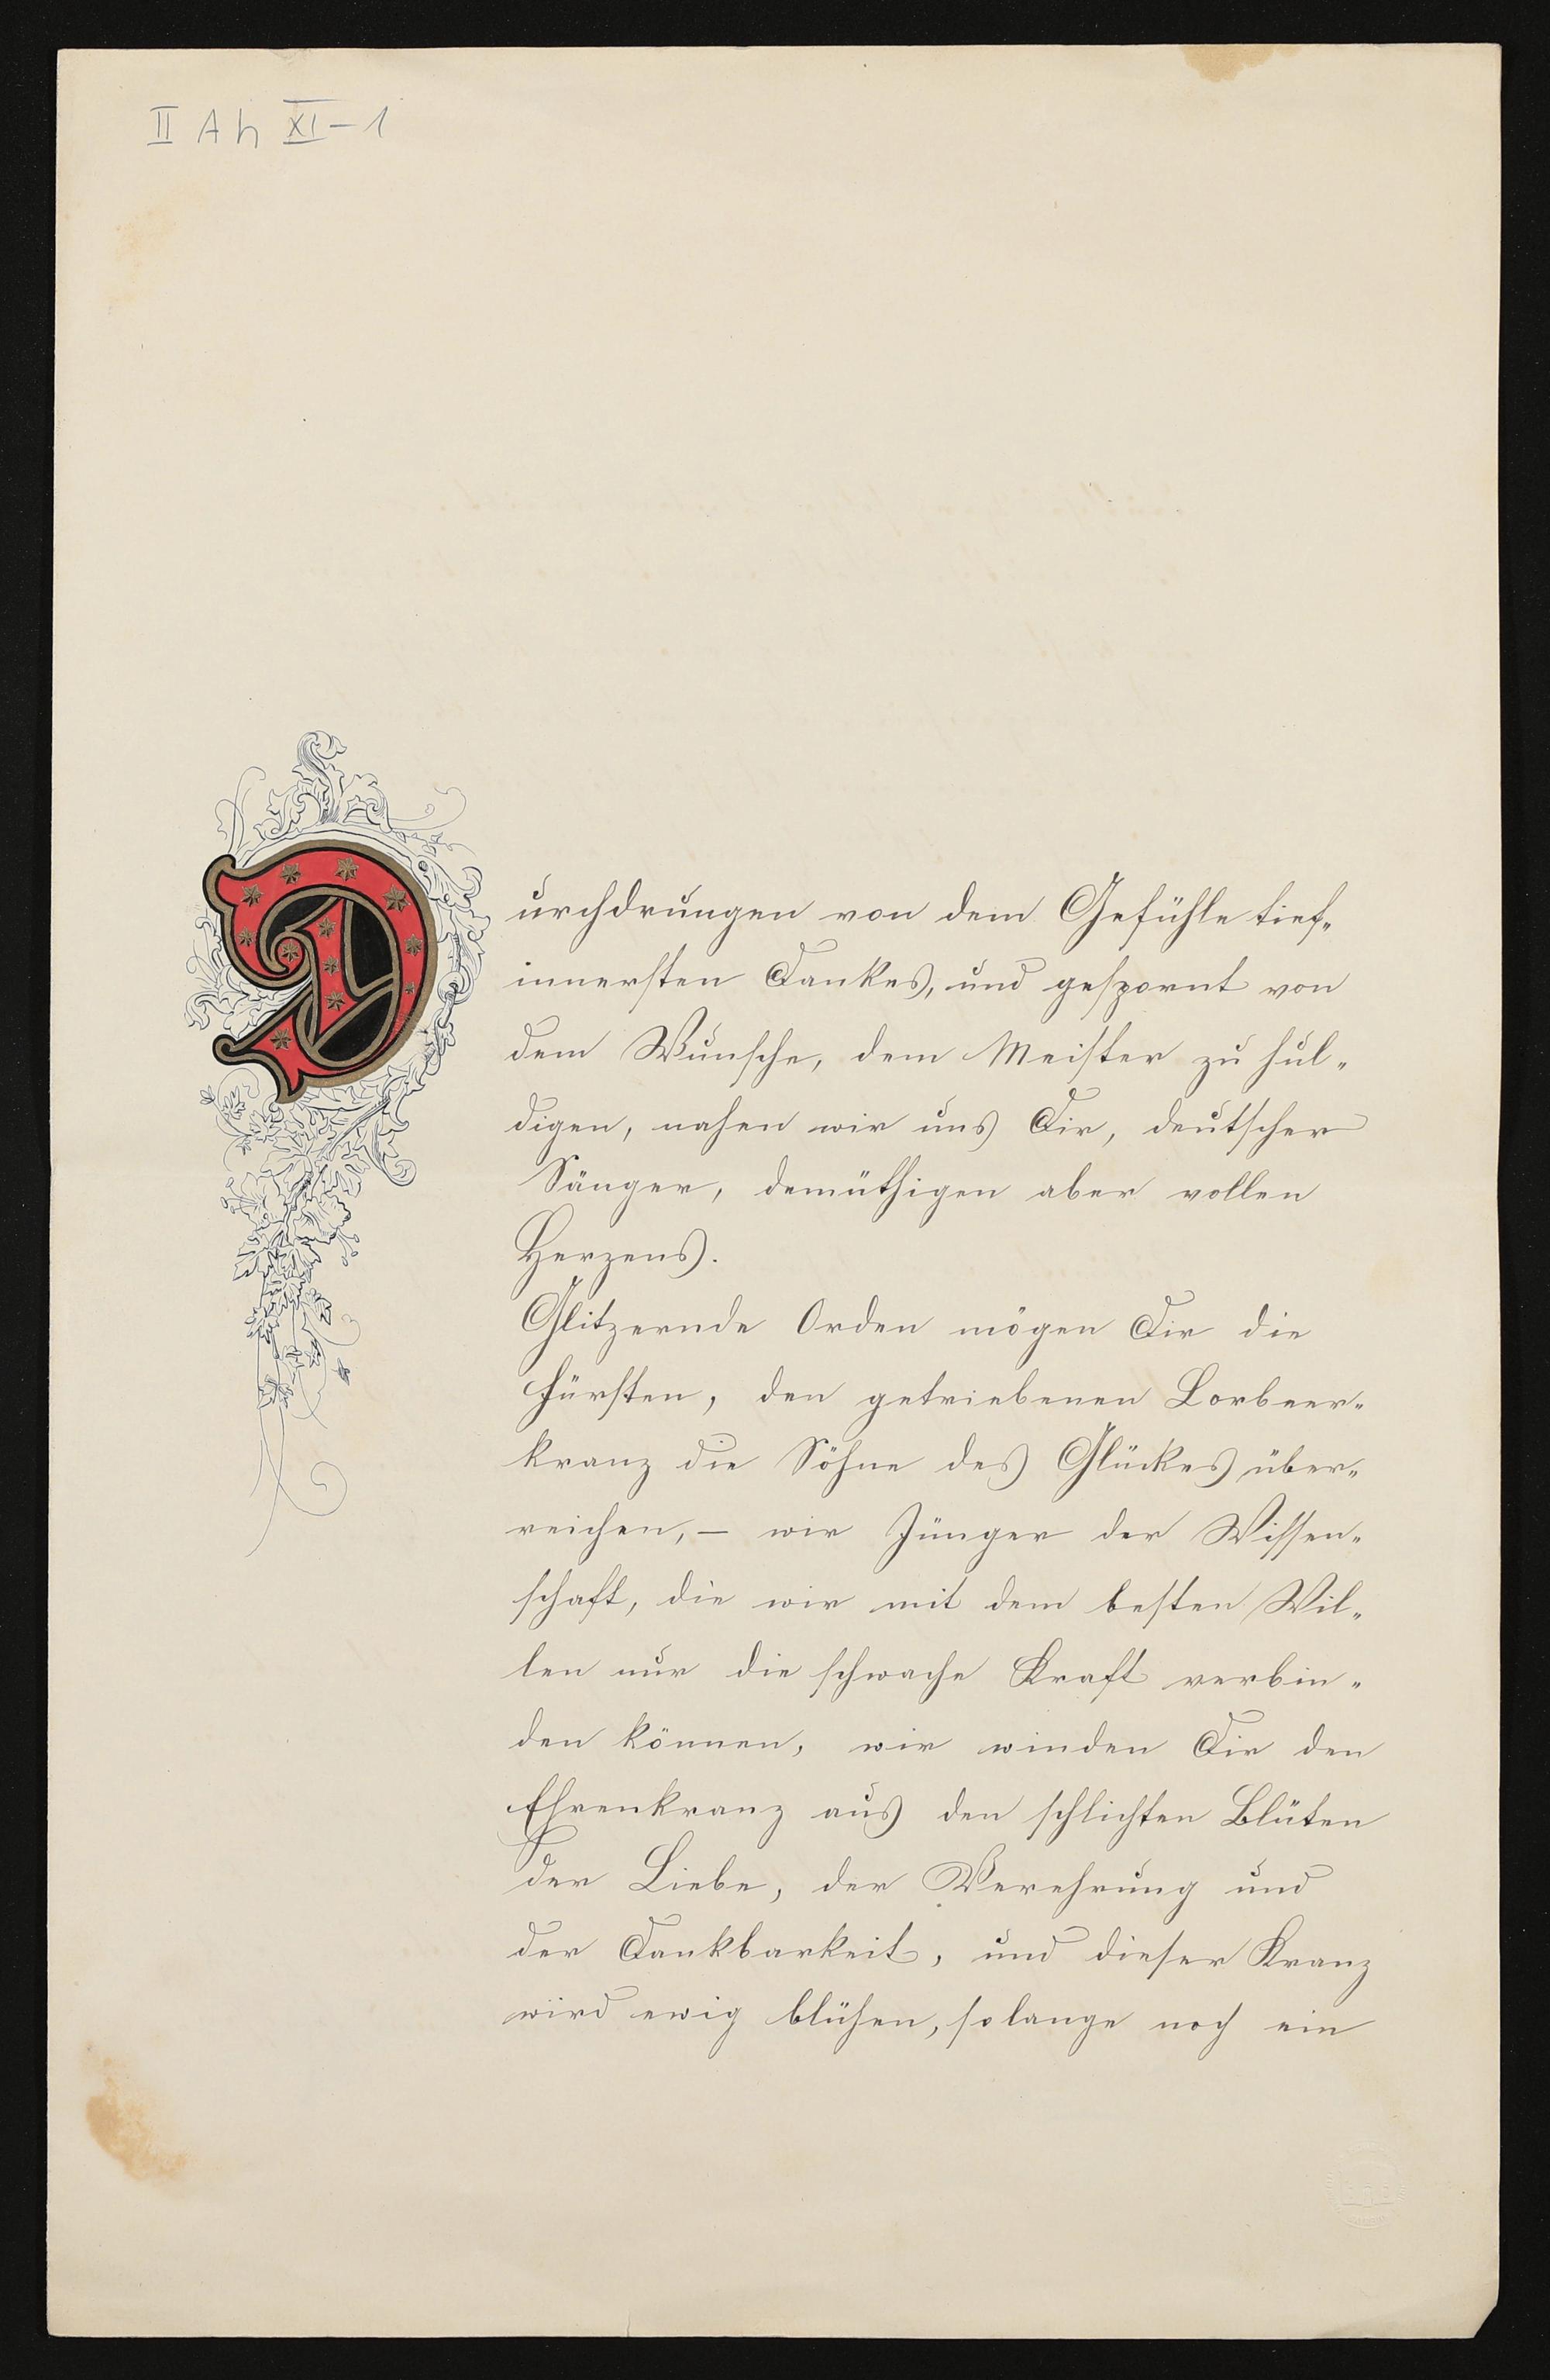 II Ah XI-1
Durchdrungen von dem Gefühle tief-
innersten Dankes, und gespornt von
dem Wunsche, dem Meister zu hul-
digen, nahen wir uns Dir, deutscher
Sänger, demüthigen aber vollen
Herzens.
Glitzernde Orden mögen Dir die
Fürsten, den getriebenen Lorbeer-
kranz die Söhne des Glückes über-
reichen, – wir Jünger der Wissen-
schaft, die wir mit dem besten Wil-
len nur die schwache Kraft verbin-
den können, wir winden Dir den
Ehrenkranz aus den schlichten Blüten
der Liebe, der Verehrung und
der Dankbarkeit, und dieser Kranz
wird ewig blühen, solange noch ein